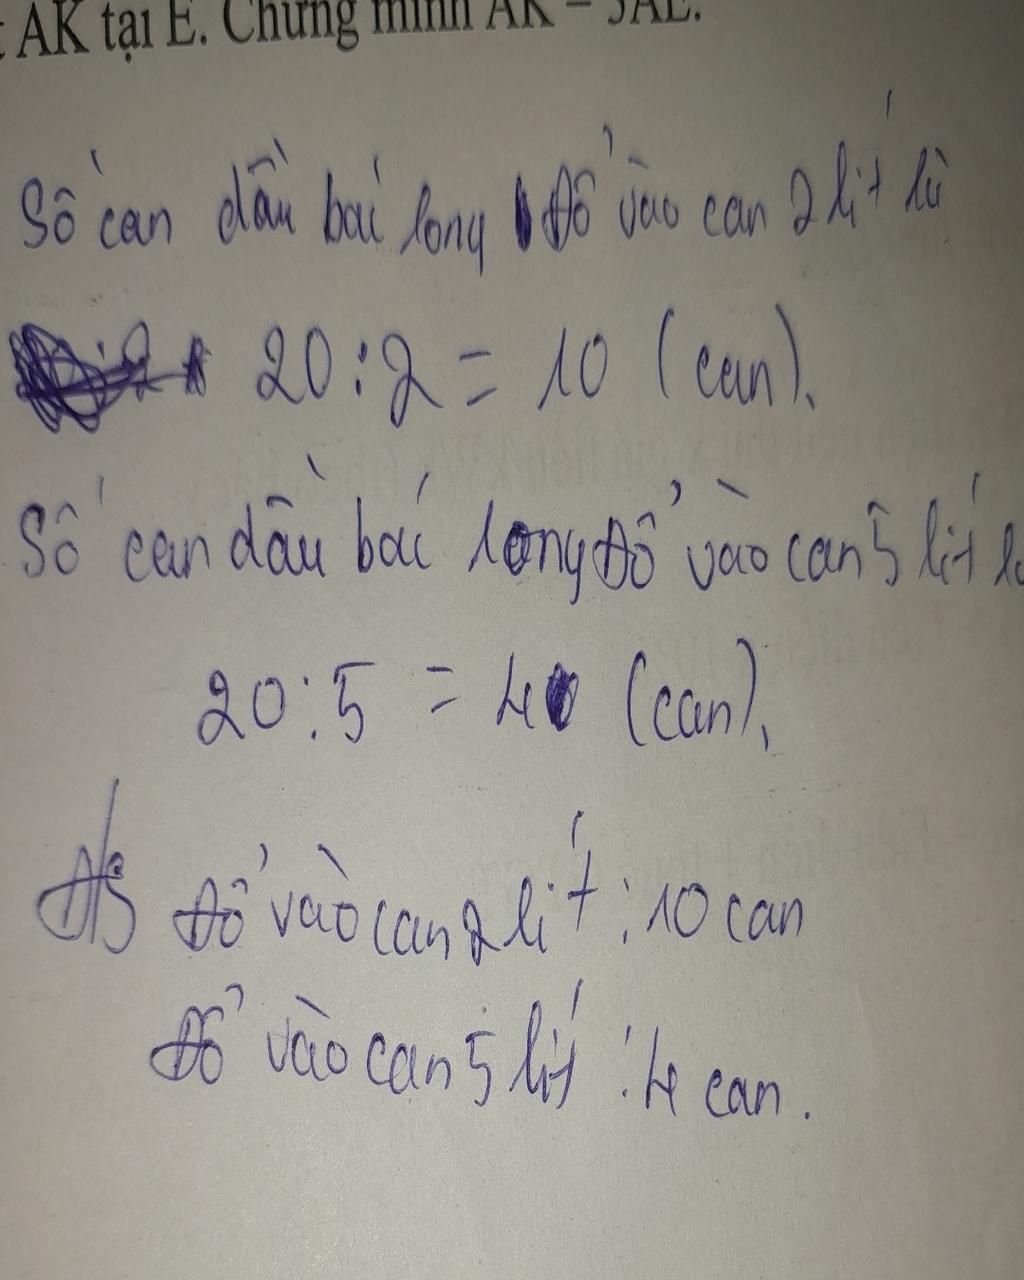 AK tại E. Chứng minh AK = 3AE.
Số can dầu bác long Đổ vào can 2 lít là
20 : 2 = 10 (can).
Số can dầu bác long Đổ vào can 5 lít
20 : 5 = 4 (can).
Đ/S Đổ vào can 2 lít : 10 can
Đổ vào can 5 lít : 4 can.